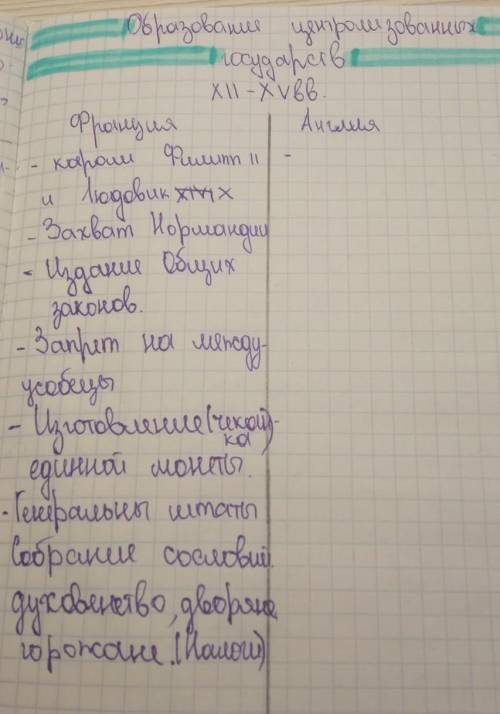 Образование централизованных
государств
XII-XVвв.
Франция
- кароли Филипп II
и Людовик X
- Захват Нормандии
- Издание Общих
законов.
- Запрет на между-
усобецы
- Изготовление (чекан-
ка)
единной монеты.
- Генеральны штаты
Собрание сословий.
духовенство, дворяне
горожане. (Налоги)
Англия
-